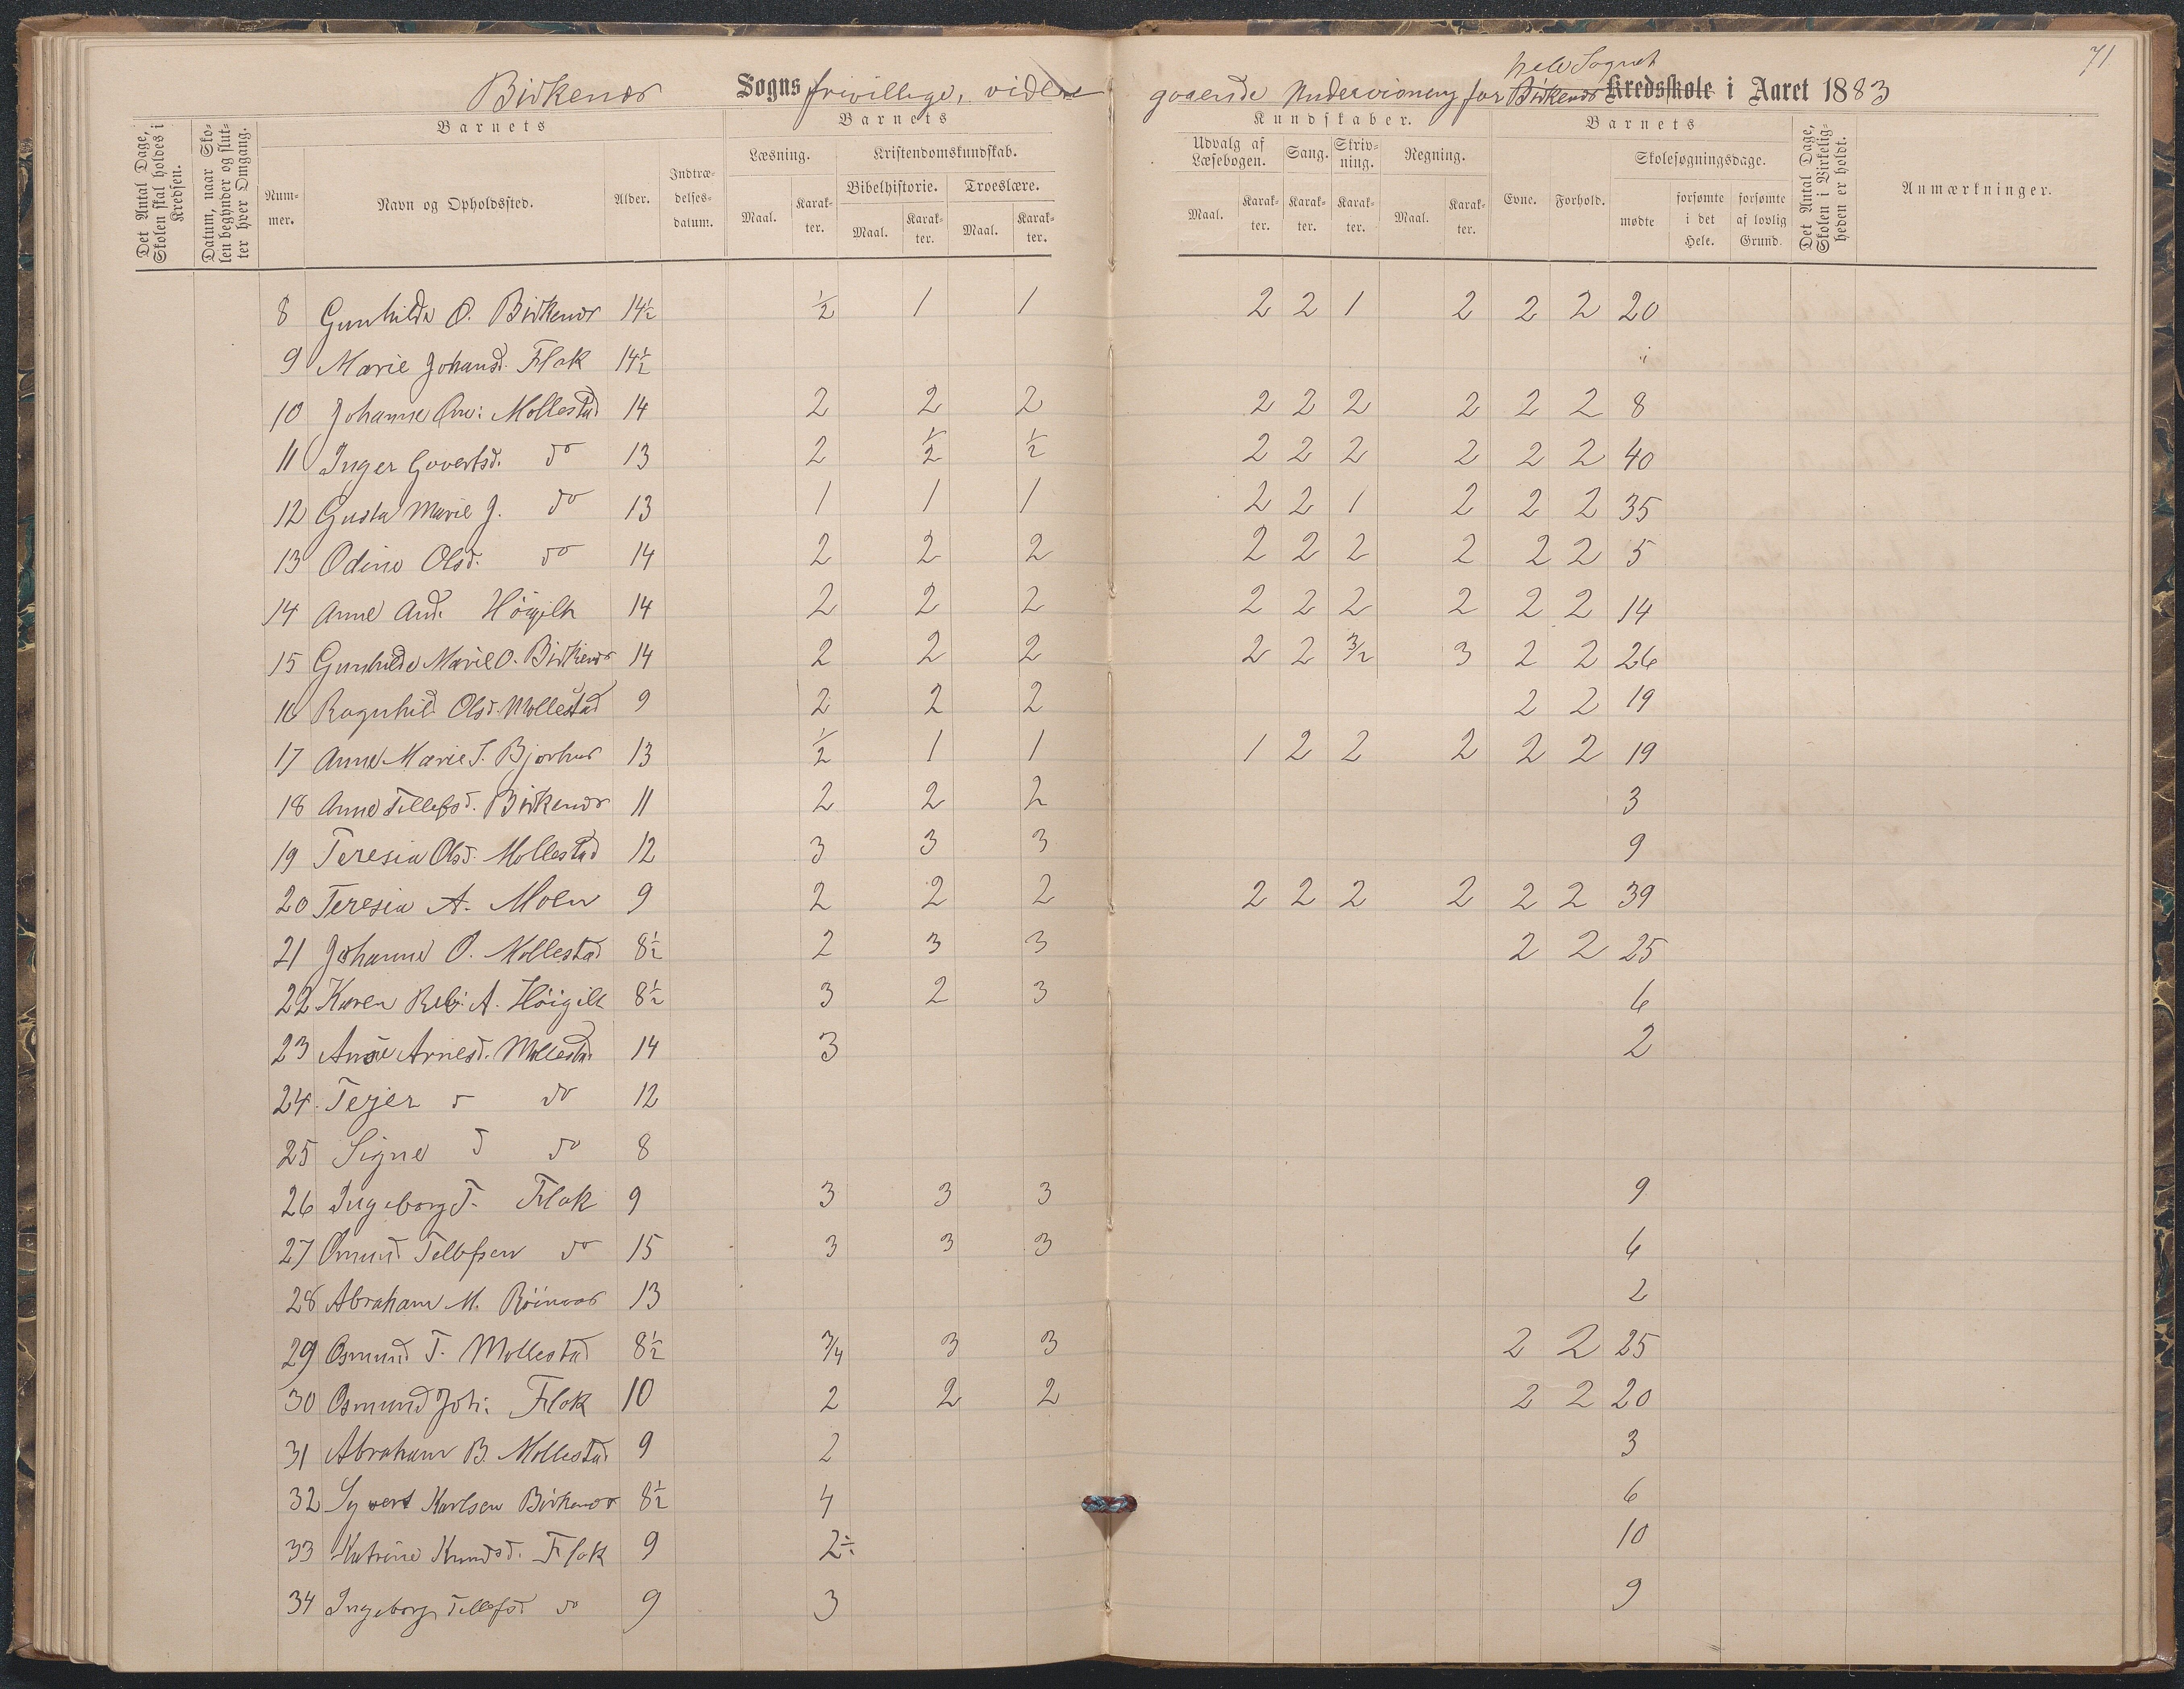 71
hele Sognet
Birkenes Sogns frivillige, videre gaaende Undervisning for Birkenes Kredsskole i Aaret 1883
Det Antal Dage, Skolen skal holdes i Kredsen.
Datum, naar Skolen begynder og slutter hver Omgang.
Barnets Barnets Kundskaber. Barnets
Det Antal Dage, Skolen i Virkeligheden er holdt.
Anmærkninger.
Nummer. Navn og Opholdssted. Alder. Indtrædelsesdatum. Læsning. Kristendomskundskab. Udvalg af Læsebogen. Sang. Skrivning. Regning. Evne. Forhold. Skolesøgningsdage.
Bibelhistorie. Troeslære.
Maal. Karakter. Maal. Karakter. Maal. Karakter. Maal. Karakter. Karakter. Karakter. Maal. Karakter. mødte forsømte i det Hele. forsømte af lovlig Grund.
8 Gunhilde O. Birkenes 14½ ½ 1 1 2 2 1 2 2 2 20
9 Marie Johansd. Flak 14½
10 Johanne Mollestad 14 2 2 2 2 2 2 2 2 2 8
11 Inger Govertsd. do 13 2 ½ ½ 2 2 2 2 2 2 40
12 Gusta Marie J. do 13 1 1 1 2 2 1 2 2 2 35
13 Odine Olsd. do 14 2 2 2 2 2 2 2 2 2 5
14 Anne And. Höigilt 14 2 2 2 2 2 2 2 2 2 14
15 Gunhilde Marie O. Birkenes 14 2 2 2 2 2 3/2 3 2 2 26
16 Ragnhild Olsd. Mollestad 9 2 2 2 2 2 19
17 Anne Marie S. Bjorhus 13 ½ 1 1 1 2 2 2 2 2 19
18 Anne Tellefsd. Birkenes 11 2 2 2 3
19 Teresia Olsd. Mollestad 12 3 3 3 9
20 Teresia A. Moen 9 2 2 2 2 2 2 2 2 2 39
21 Johanne O. Mollestad 8½ 2 3 3 2 2 25
22 Karen Reb. A. Höigilt 8½ 3 2 3 6
23 Arnesd. Mollestad 14 3 2
24 Tejer do 12
25 Signe do 8
26 Ingeborg T. Flak 9 3 3 3 9
27 Omund Tellefsen do 15 3 3 3 6
28 Abraham M. 13 2
29 Osmund T. Mollestad 8½ 3/4 3 3 2 2 25
30 Osmund Joh. Flak 10 2 2 2 2 2 20
31 Abraham B. Mollestad 9 2 3
32 Syvert Karlsen Birkenes 8½ 4 6
33 Katrine Knudsd. Flak 9 2÷ 10
34 Ingeborg Tellefsd do 9 3 9